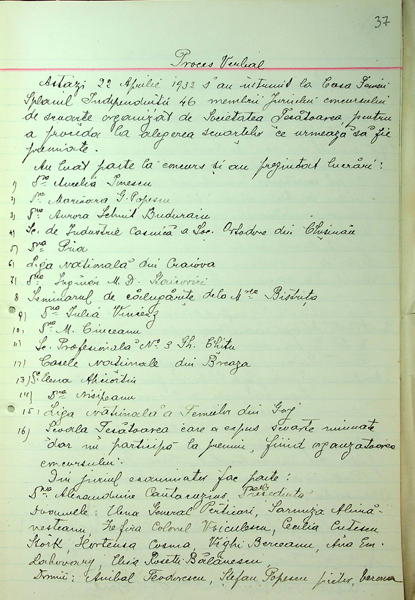 37
Proces Verbal
Astăzi 22 Aprilie 1932 s'au întrunit la Casa Femeii
Splaiul Independenții 46 membrii Juriului concursului
de scoarțe organizat de Societatea Țesătoarea, pentru
a proceda la alegerea scoarțelor ce urmează să fie
premiate.
Au luat parte la concurs și au prezintat lucrări:
1) D-na Aurelia Ionescu
2) D-na Marioara G. Popescu
3) D-na Aurora Schmit Budurain
4) Sc. de Industrie Casnică a Soc. Ortodoxe din Chișinău
5) D-na
6) Liga Națională din Craiova
7) D-na Inginer M. D.
8 Seminarul de călugărițe dela M-rea Bistrița
9) D-na Iulia Vincenz
10) D-na M. Ciuceanu
11) Sc. Profesională No. 3 Th. Chitu
12) Casele Naționale din Breaza
13) Elena
14) D-na Nisipeanu
15) Liga Națională a Femeilor din Gorj
16) Școala Țesătoarea care a expus scoarțe minunate
dar nu participă la premii, fiind organizatoarea
concursului.
Din juriul examinator fac parte:
D-na Alexandrina Cantacuzino, Președintă
Doamnele: Elena General Perticari,
Zefira Colonel Voiculescu, Cecilia Cutescu
Stork, Hortensa Cosma, Berceanu, Ana Em.
Lahovary, Elisa Rosetti Bălănescu
Domnii: Anibal Teodorescu, Stefan Popescu pictor, Verona